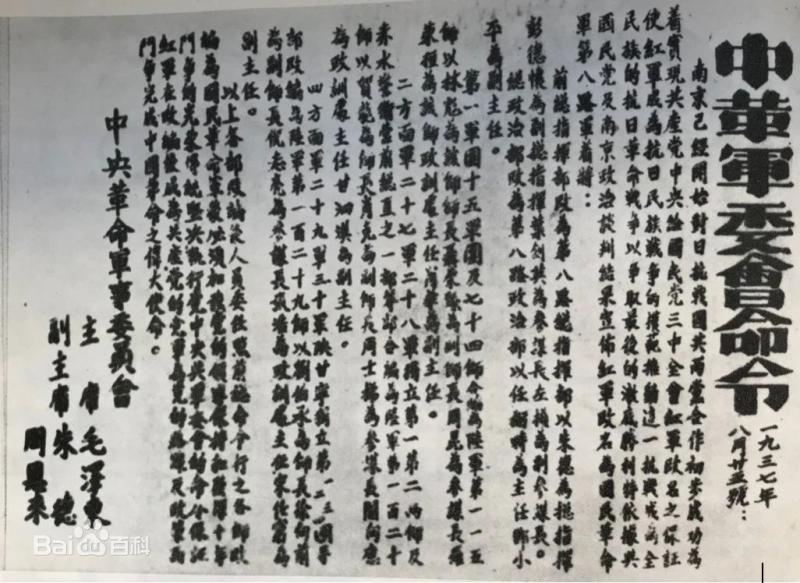 中革軍委會命令
一九三七年
八月廿五號：
南京已經開始對日抗戰國共兩黨合作初步成功為
着實現共產黨中央給國民黨三中全會紅軍改名之保証
使紅軍成為抗日民族戰爭的模範推動這一抗戰成為全
民族的抗日革命戰爭以爭取最後的澈底勝利特依據共
國民黨及南京政治談判結果宣佈紅軍改名為國民革命
軍第八路軍着將：
前總指揮部改為第八路總指揮部以朱德為總指揮
彭德懷為副總指揮葉劍英為參謀長左權為副參謀長。
總政治部改為第八路政治部以任弼時為主任鄧小
平為副主任。
第一軍團十五軍團及七十四師合編為陸軍第一一五
師以林彪為該師師長聶榮臻為副師長周昆為參謀長羅
榮桓為該師政訓處主任蕭華為副主任。
二方面軍二十七軍二十八軍獨立第一第二兩師及
赤水警衛營前總直之一部等部合編為陸軍第一百二十
師以賀龍為師長肖克為副師長周士梯為參謀長關向應
為政訓處主任甘泗淇為副主任。
四方面軍二十九軍三十軍陝甘寧獨立第一二三四等
部改編為陸軍第一百二十九師以劉伯承為師長徐向前
為副師長倪志亮為參謀長張浩為政訓處主任宋任窮為
副主任。
以上各部改編後人員委任照前總命令行之各部改
編為國民革命軍後必須加強黨的領導保持和發揮十年
鬥爭的光榮傳統堅決執行黨中央與軍委會的命令保証
紅軍在改編後成為共產黨的黨軍為黨的路線及政策而
鬥爭完成中國革命之偉大使命。
中央革命軍事委員會
主席毛澤東
副主席朱德
周恩來
Bai百科